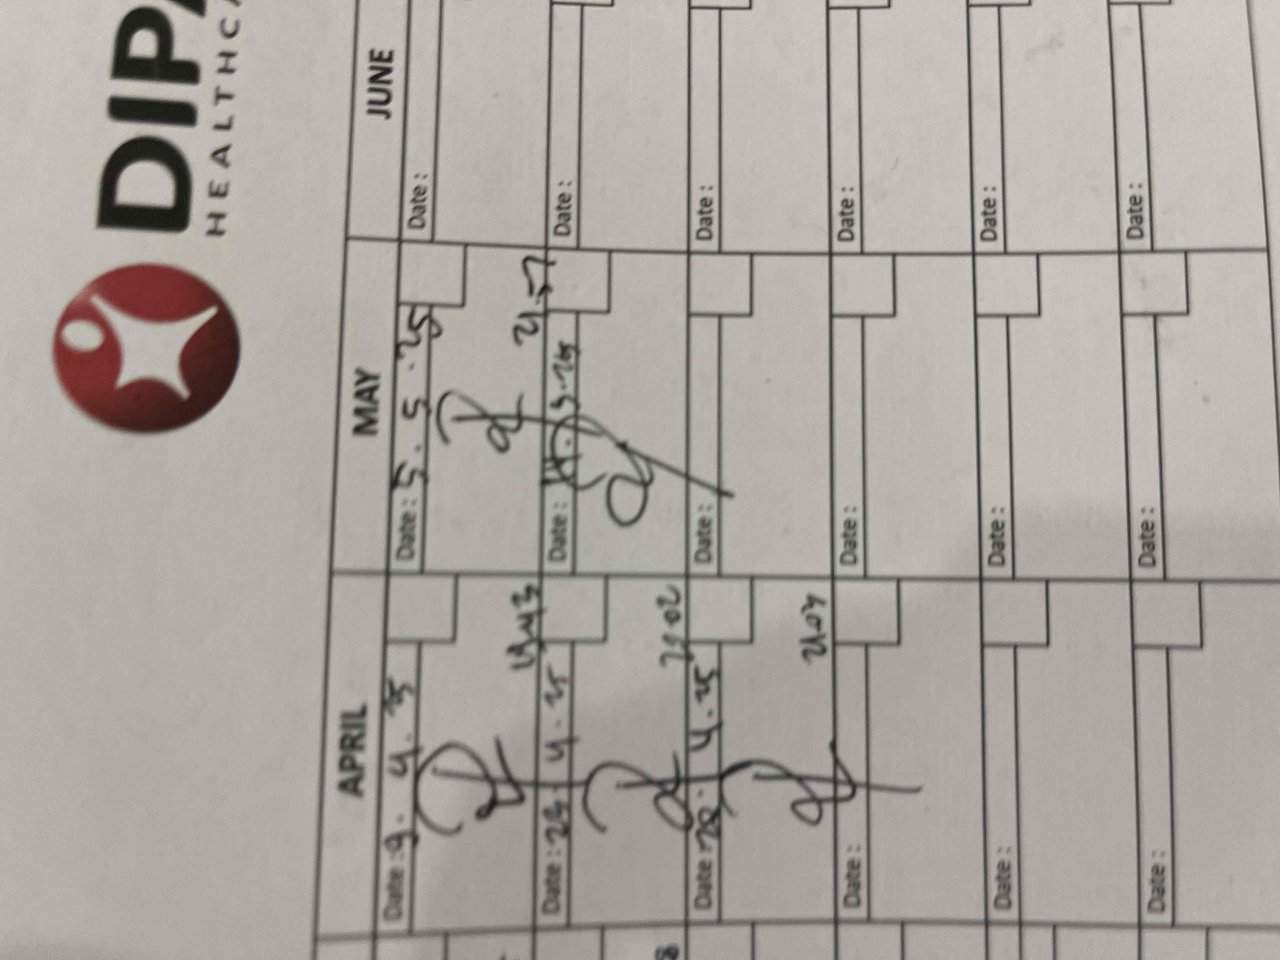 DIPA
HEALTHCA
APRIL MAY JUNE
Date : 9. 4. 25
Date : 5. 5. 25
Date :
19.43
21.57
Date : 24. 4. 25
Date : 14. 5. 25
Date :
Date : 28. 4. 25
Date :
Date :
21.03
Date :
Date :
Date :
Date :
Date :
Date :
Date :
Date :
Date :